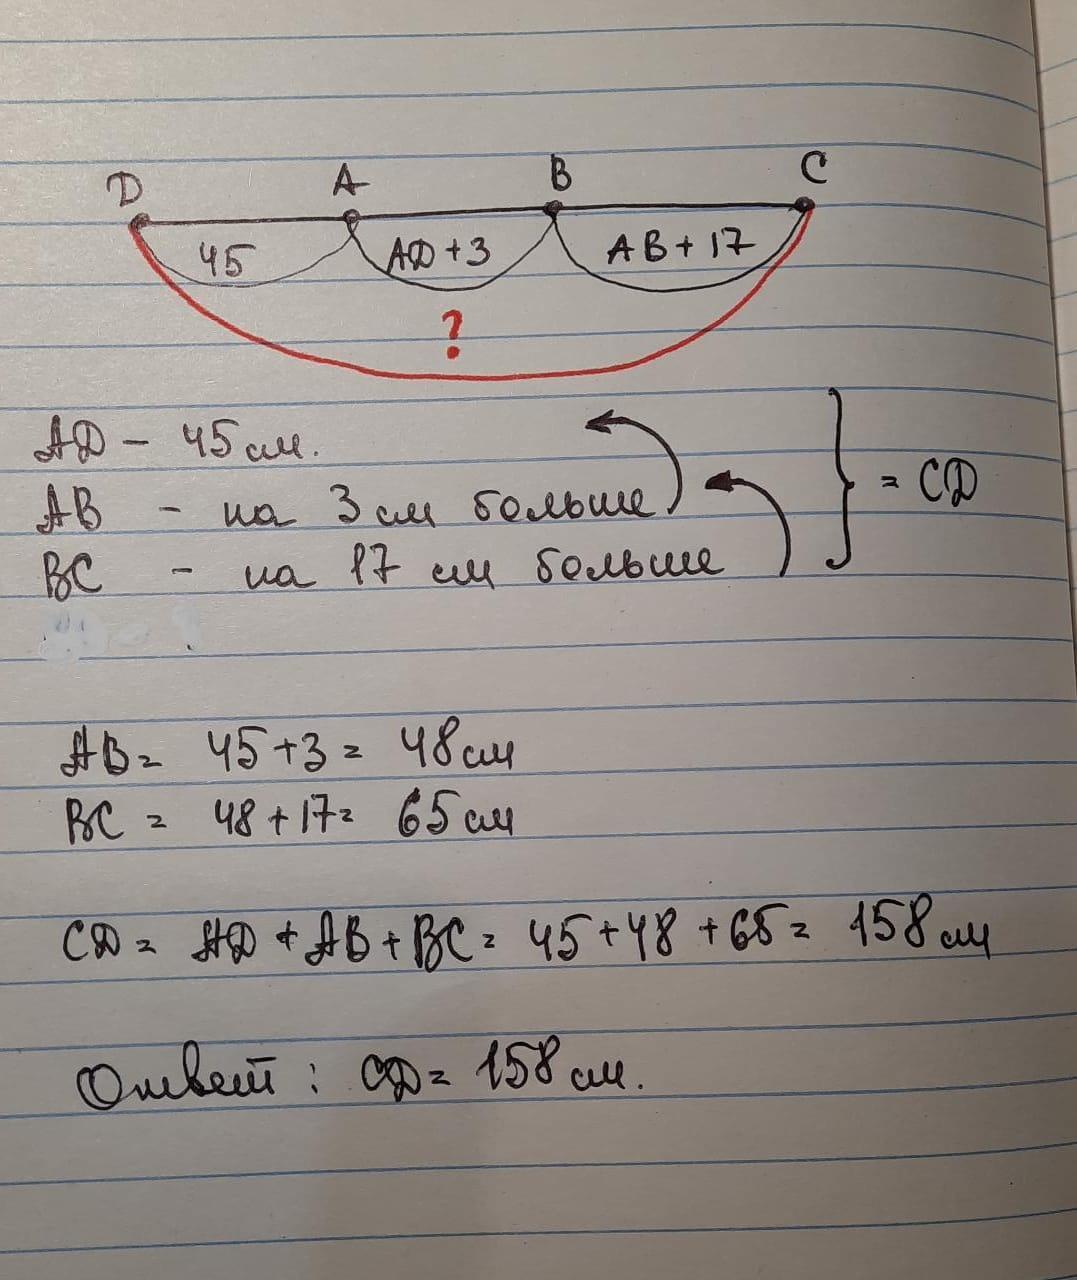 D A B C
45 AD+3 AB+17
?
AD - 45 см.
AB - на 3 см больше
BC - на 17 см больше
} = CD
AB = 45+3 = 48 см
BC = 48+17 = 65 см
CD = AD + AB + BC = 45+48+65 = 158 см
Ответ: CD = 158 см.